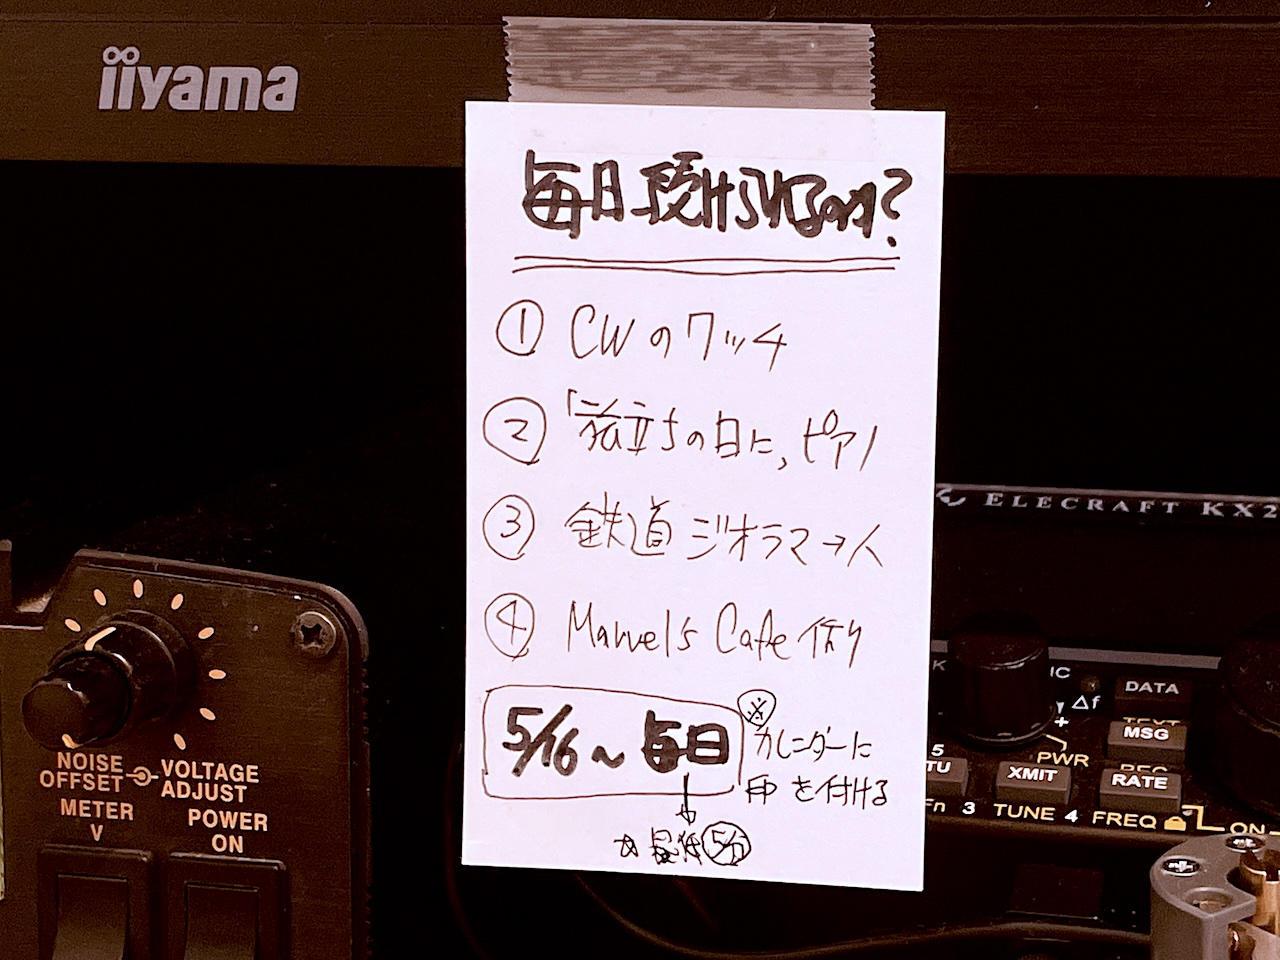 iiyama
毎日続けられるのか?
① CWのワッチ
② 「旅立ちの日に」ピアノ
③ 鉄道ジオラマ→人
④ Marvel's Cafe 作り
5/16〜毎日
※カレンダーに
印を付ける
↓
☆最低5分
ELECRAFT KX2
NOISE
OFFSET
VOLTAGE
ADJUST
METER
V
POWER
ON
DATA
Δf
MSG
PWR
XMIT
RATE
3 TUNE 4 FREQ
ON